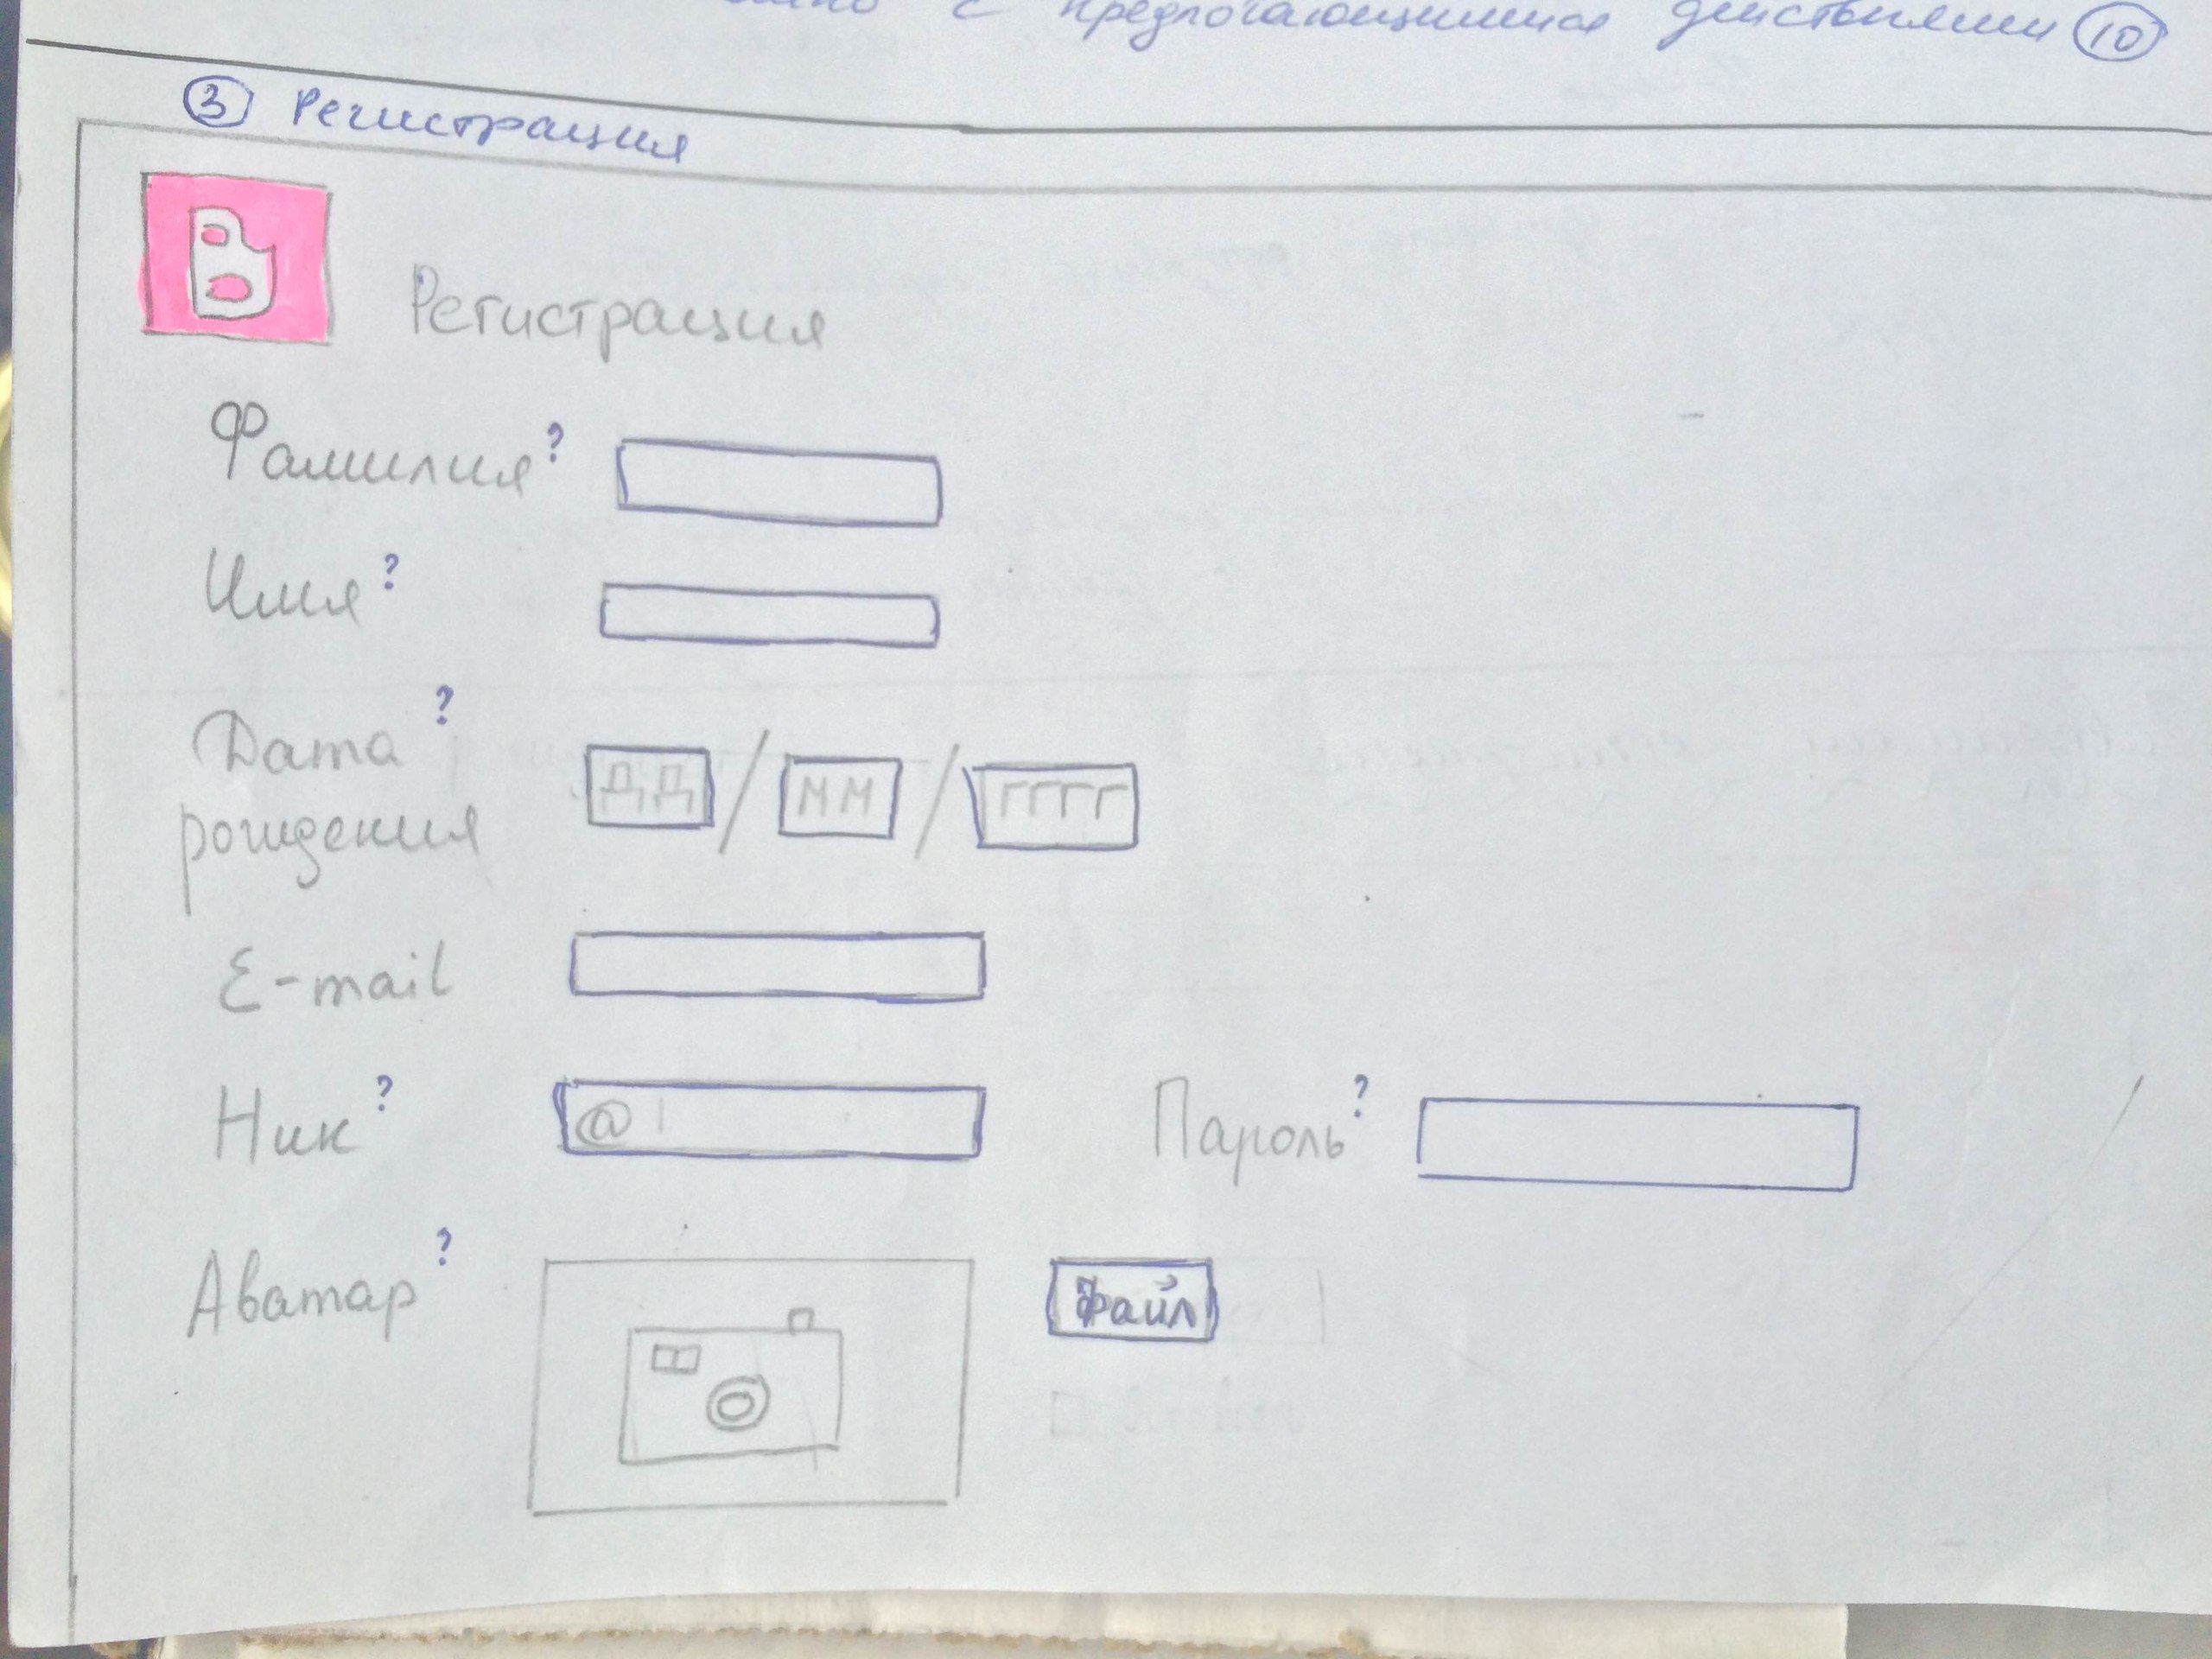 с предлогающимися действиями 10
3 Регистрация
В
Регистрация
Фамилия?
Имя?
Дата ?
рождения
ДД / ММ / ГГГГ
E-mail
Ник? @ Пароль?
Аватар? Файл